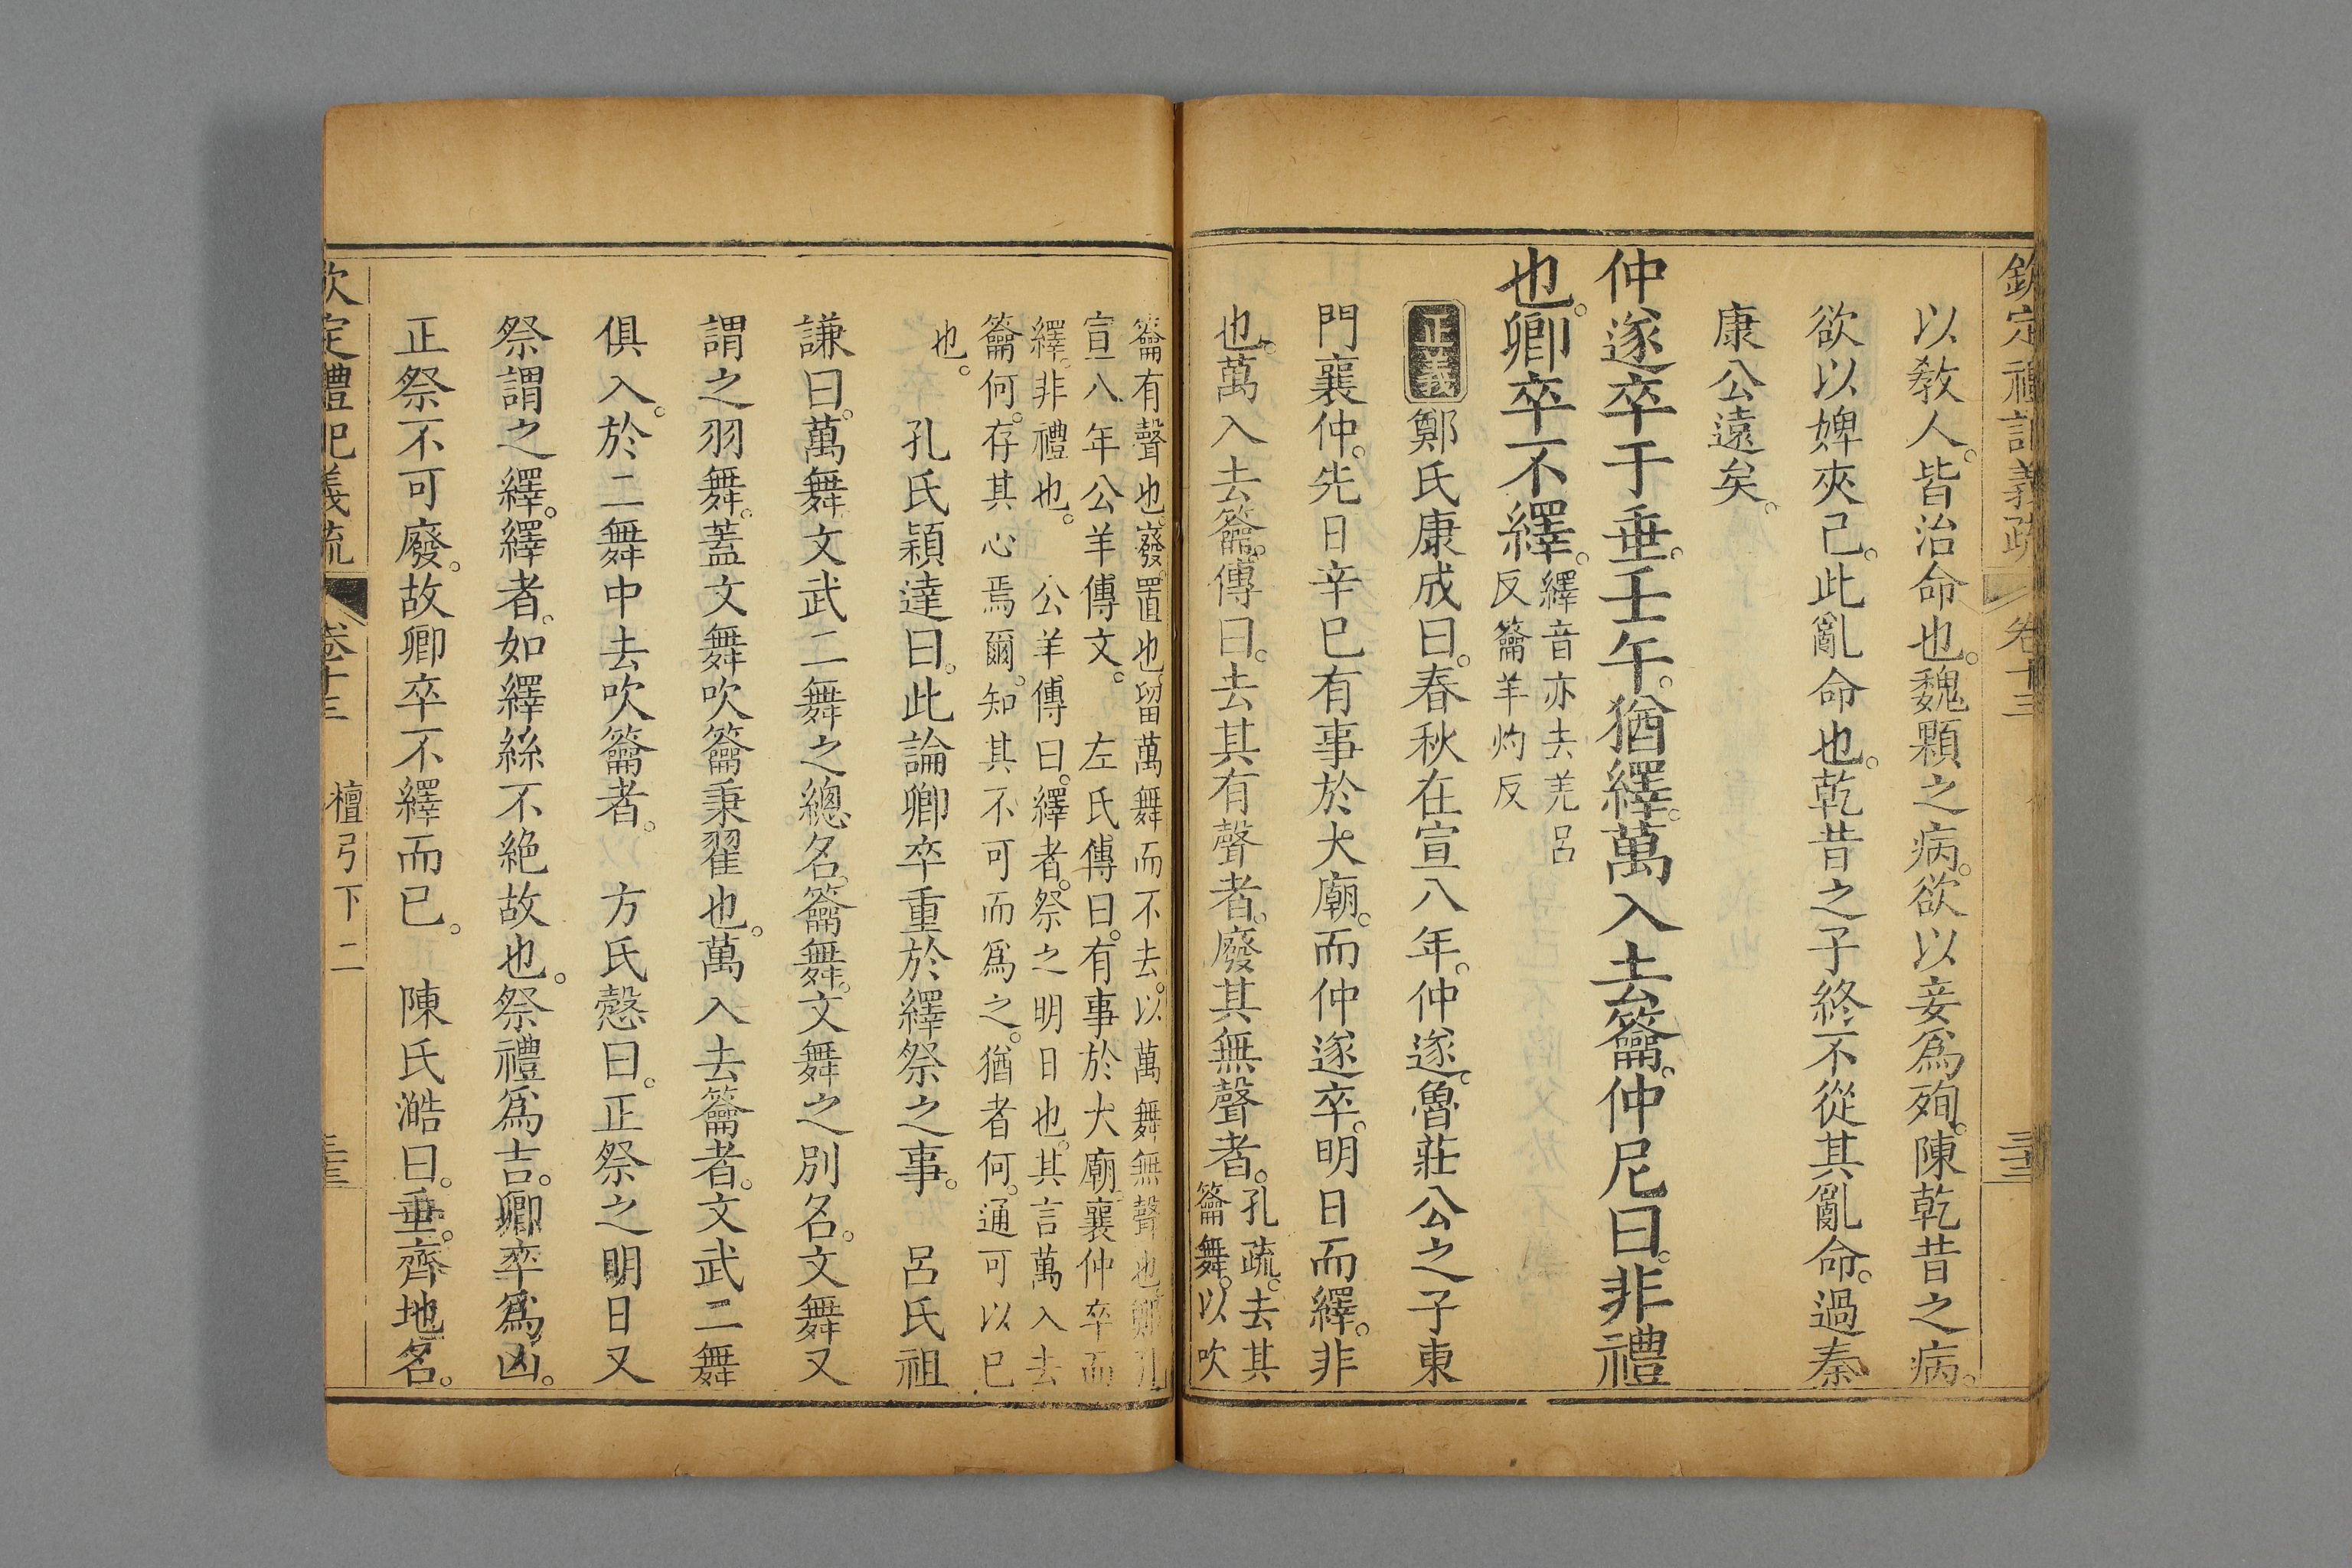 欽定禮記義疏 卷十三
以敎人。皆治命也。魏顆之病。欲以妾爲殉。陳乾昔之病。
欲以婢夾己。此亂命也。乾昔之子終不從其亂命。過秦
康公遠矣。
仲遂卒于垂。壬午。猶繹。萬入去籥。仲尼曰。非禮
也。卿卒不繹。
繹音亦去羌呂
反籥羊灼反
正義 鄭氏康成曰。春秋在宣八年。仲遂。魯莊公之子東
門襄仲。先日辛巳有事於大廟。而仲遂卒。明日而繹。非
也。萬入去籥。傳曰。去其有聲者。廢其無聲者。
孔疏。去其
籥舞。以吹
籥有聲也。廢。置也。留萬舞而不去。以萬舞無聲也。鄭引
宣八年公羊傳文。 左氏傳曰。有事於大廟。襄仲卒而
繹。非禮也。 公羊傳曰。繹者。祭之明日也。其言萬入去
籥何。存其心焉爾。知其不可而爲之。猶者何。通可以已
也。
孔氏穎達曰。此論卿卒重於繹祭之事。 呂氏祖
謙曰。萬舞文武二舞之總名。籥舞。文舞之別名。文舞又
謂之羽舞。蓋文舞吹籥秉翟也。萬入去籥者。文武二舞
俱入。於二舞中去吹籥者。 方氏慤曰。正祭之明日又
祭謂之繹。繹者。如繹絲不絶故也。祭禮爲吉。卿卒爲凶。
正祭不可廢。故卿卒不繹而已。 陳氏澔曰。垂。齊地名。
欽定禮記義疏 卷十三 檀弓下二